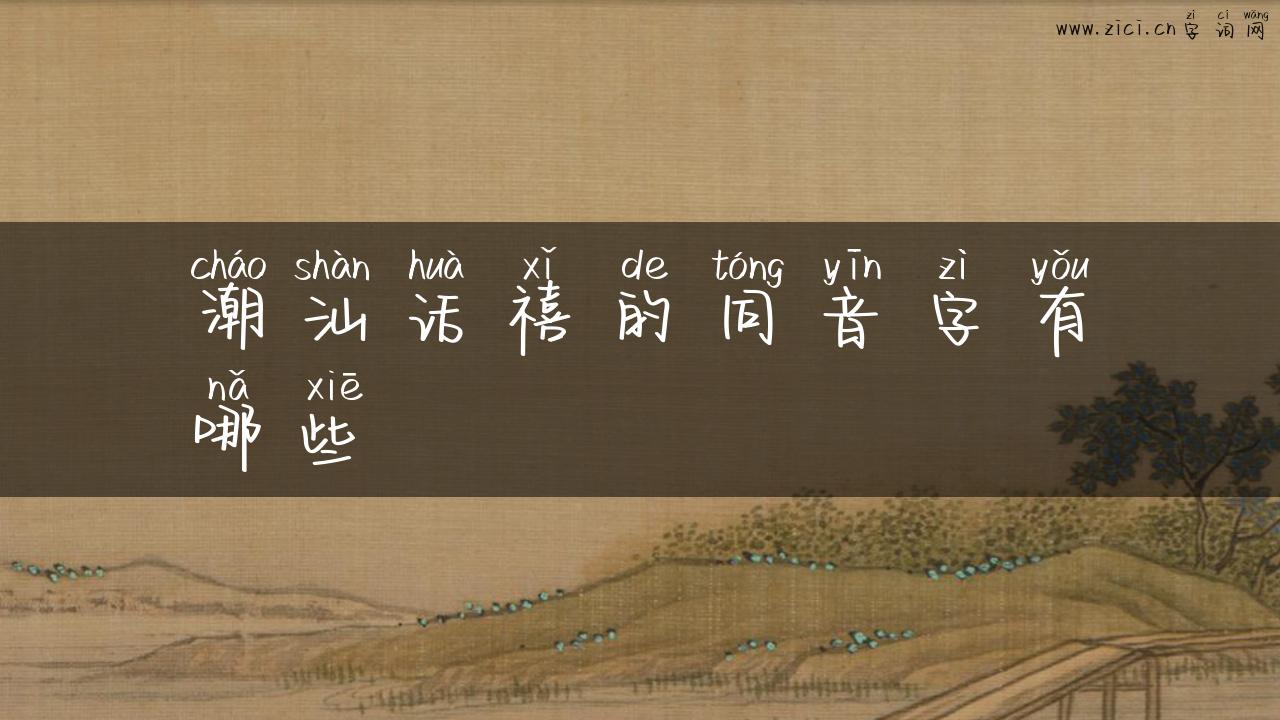 zì cí wǎng
www.zici.cn字词网
cháo shàn huà xǐ de tóng yīn zì yǒu
潮汕话禧的同音字有
nǎ xiē
哪些